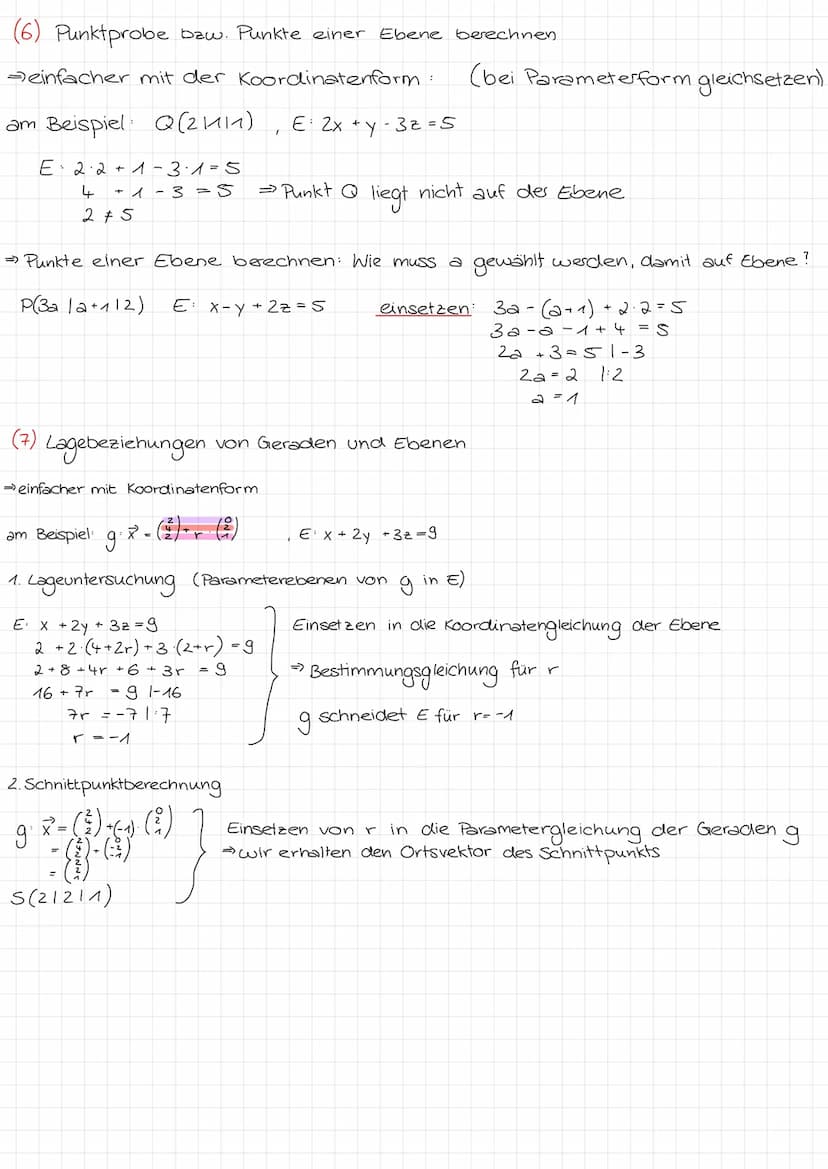 (6) Punktprobe bzw. Punkte einer Ebene berechnen
⇒einfacher mit der Koordinatenform: (bei Parameterform gleichsetzen)
am Beispiel: Q(2|1|1) , E: 2x + y - 3z = 5
E: 2·2 + 1 - 3·1 = 5
4 + 1 - 3 = 5 ⇒ Punkt Q liegt nicht auf des Ebene
2 ≠ 5
⇒ Punkte einer Ebene berechnen: Wie muss a gewählt werden, damit auf Ebene?
P(3a|a+1|2) E: x-y+2z=5 einsetzen: 3a-(a+1)+2·2=5
3a-a-1+4=5
2a+3=5 |-3
2a=2 |:2
a=1
(7) Lagebeziehungen von Geraden und Ebenen
⇒einfacher mit Koordinatenform
am Beispiel: g: x⃗ = (2 4 2) + r · (0 2 1) , E: x + 2y + 3z = 9
1. Lageuntersuchung (Parameterebenen von g in E)
E: x + 2y + 3z = 9 Einsetzen in die Koordinatengleichung der Ebene
2 + 2·(4+2r) + 3·(2+r) = 9
2 + 8 + 4r + 6 + 3r = 9 ⇒ Bestimmungsgleichung für r
16 + 7r = 9 |-16
7r = -7 |:7 g schneidet E für r=-1
r = -1
2. Schnittpunktberechnung
g: x⃗ = (2 4 2) + (-1) · (0 2 1) Einsetzen von r in die Parametergleichung der Geraden g
= (2 4 2) + (0 -2 -1) ⇒ wir erhalten den Ortsvektor des Schnittpunkts
= (2 2 1)
S(2|2|1)